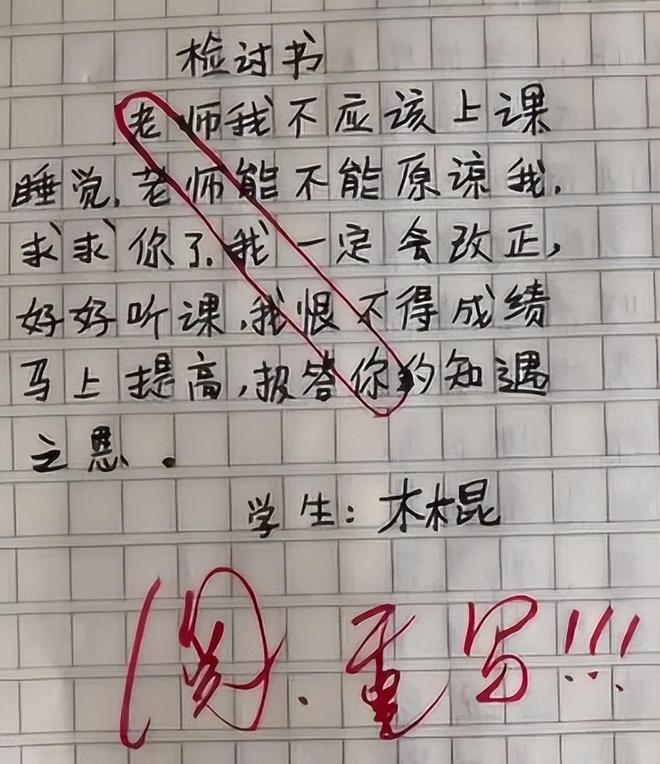 检讨书
老师我不应该上课
睡觉,老师能不能原谅我,
求求你了,我一定会改正,
好好听课,我恨不得成绩
马上提高,报答你的知遇
之恩。
学生:木木棍
重写!!!